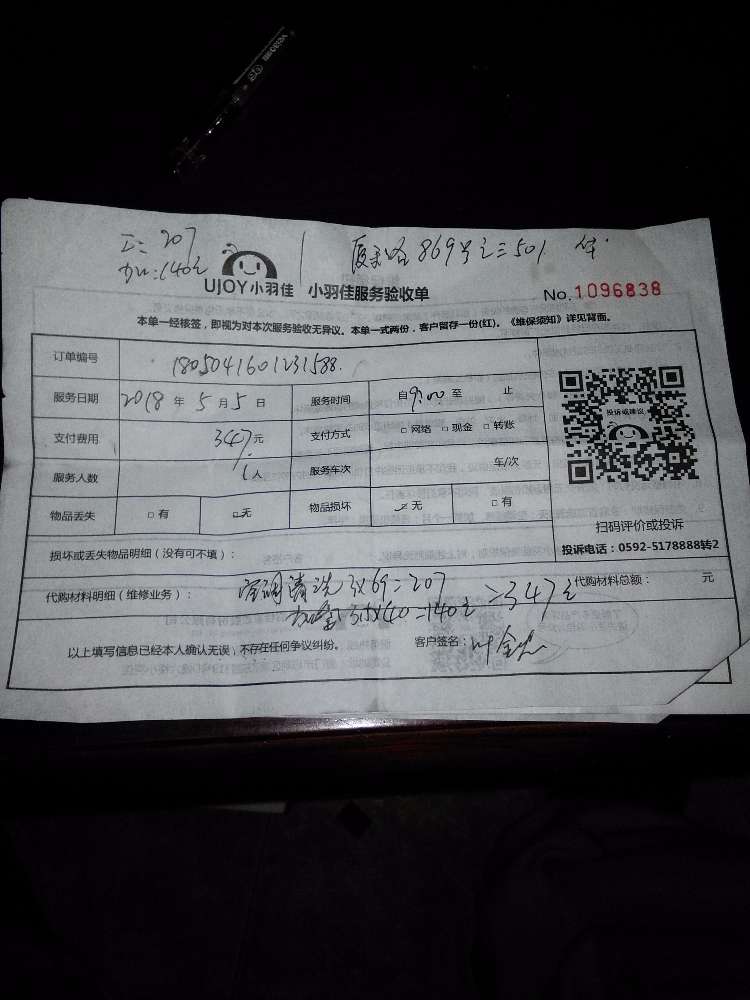 工：207
加：140元
厦禾路869号之三501
UJOY小羽佳 小羽佳服务验收单
No.1096838
本单一经核签，即视为对本次服务验收无异议。本单一式两份，客户留存一份(红)。《维保须知》详见背面。
订单编号 1805041601231588.
服务日期 2018年5月5日 服务时间 自9:00至 止
支付费用 347元 支付方式 □网络 □现金 □转账
服务人数 1人 服务车次 车/次
物品丢失 □有 □无 物品损坏 □无 □有
投诉或建议
扫码评价或投诉
投诉电话：0592-5178888转2
损坏或丢失物品明细（没有可不填）：
代购材料明细（维修业务）： 空调清洗3x69=207
3.5x40=140元 =347元
代购材料总额： 元
以上填写信息已经本人确认无误，不存在任何争议纠纷。 客户签名：